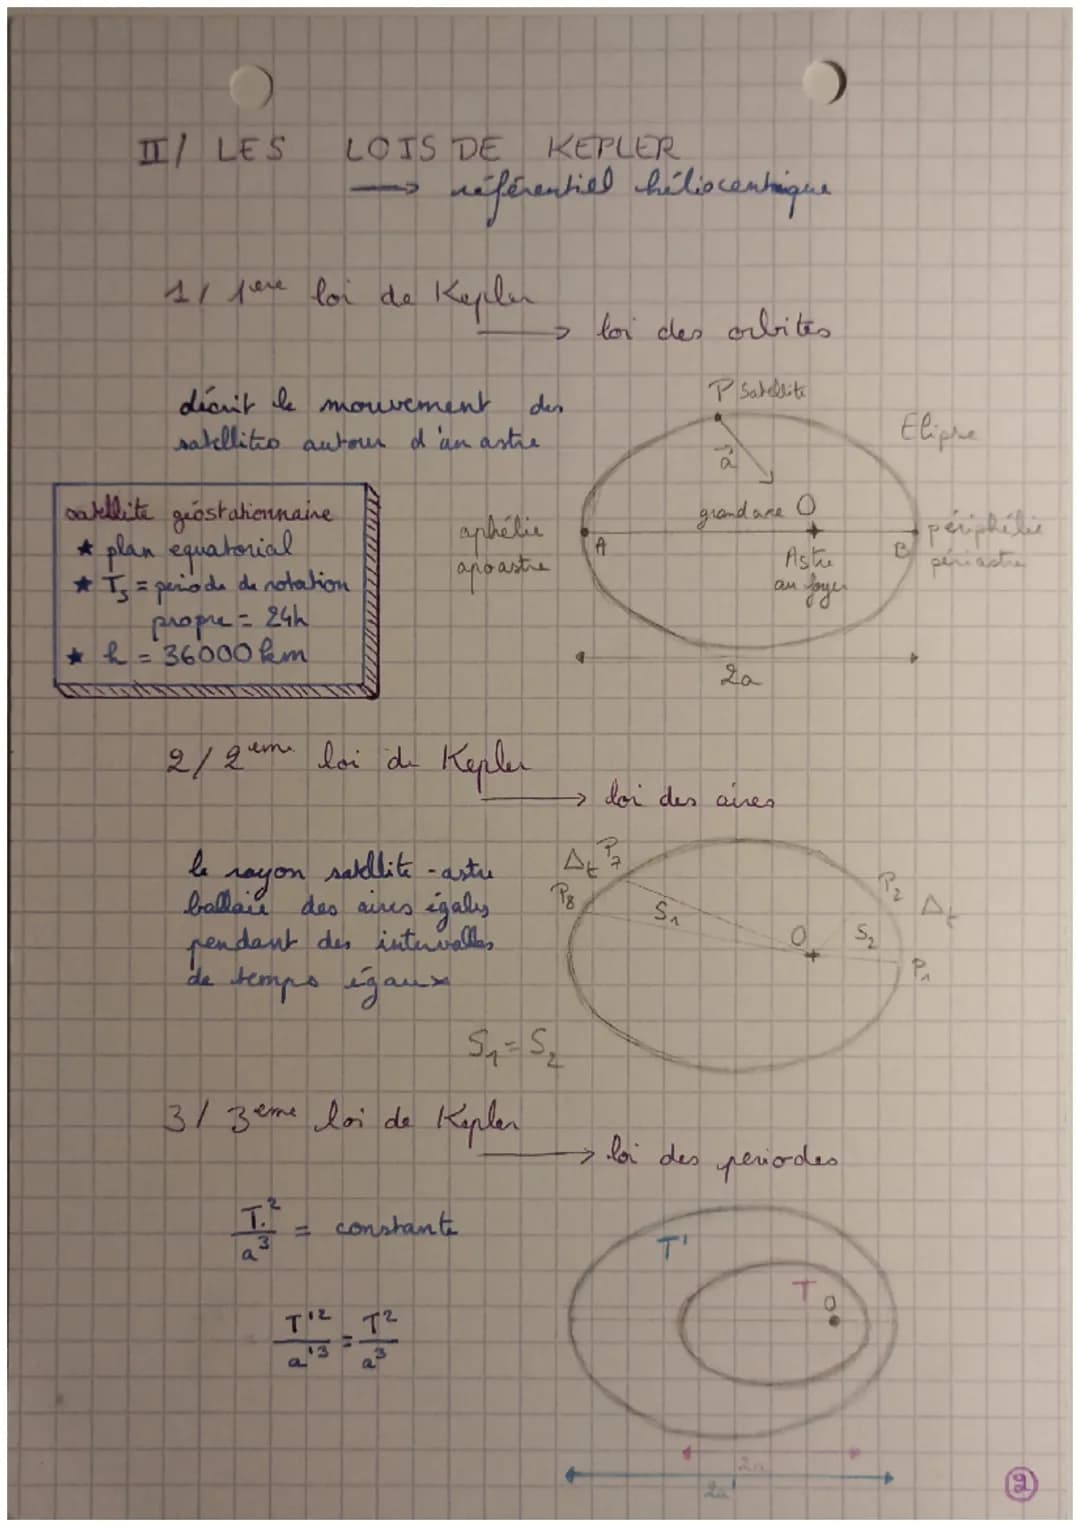 II/ LES LOIS DE KEPLER
→ référentiel héliocentrique
1/ 1ere loi de Kepler
→ loi des orbites
décrit le mouvement des
satellites autour d'un astre
P Satellite
Elipse
a
grand axe O
aphélie
apoastre
A
Astre
au foyer
B
périphélie
périastre
2a
satellite géostationnaire
★ plan equatorial
★ Ts = periode de rotation
propre = 24h
★ h = 36000 km
2/ 2eme loi de Kepler
→ loi des aires
le rayon satellite - astre
ballaie des aires égales
pendant des intervalles
de temps égaux
S1 = S2
Δt P7
P8
S1
O
S2
P2 Δt
P1
3/ 3eme loi de Kepler
→ loi des periodes
T²/a³ = constante
T'²/a'³ = T²/a³
T'
T
O
2a
2a'
2